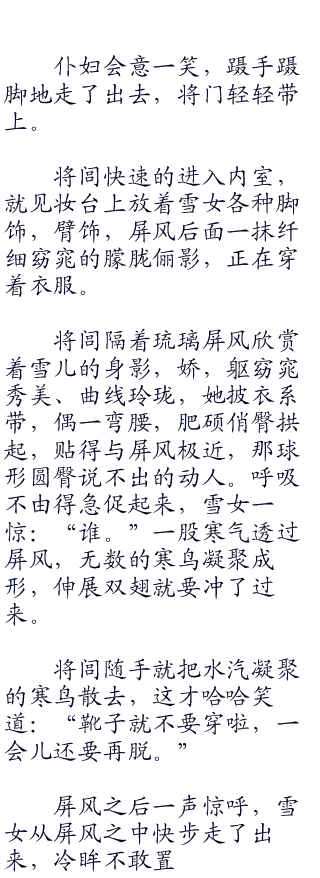 仆妇会意一笑，蹑手蹑
脚地走了出去，将门轻轻带
上。
将闾快速的进入内室，
就见妆台上放着雪女各种脚
饰，臂饰，屏风后面一抹纤
细窈窕的朦胧俪影，正在穿
着衣服。
将闾隔着琉璃屏风欣赏
着雪儿的身影，娇，躯窈窕
秀美、曲线玲珑，她披衣系
带，偶一弯腰，肥硕俏臀拱
起，贴得与屏风极近，那球
形圆臀说不出的动人。呼吸
不由得急促起来，雪女一
惊：“谁。”一股寒气透过
屏风，无数的寒鸟凝聚成
形，伸展双翅就要冲了过
来。
将闾随手就把水汽凝聚
的寒鸟散去，这才哈哈笑
道：“靴子就不要穿啦，一
会儿还要再脱。”
屏风之后一声惊呼，雪
女从屏风之中快步走了出
来，冷眸不敢置